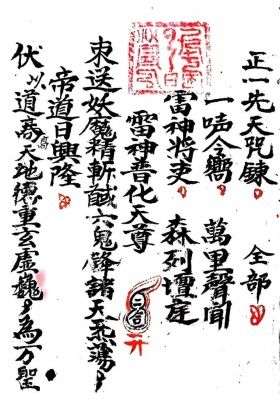 正一先天咒鍊　全部
一啨令響　萬里聲聞
雷神將吏　森列壇庭
雷神普化天尊
束送妖魔精斬馘六鬼鋒諸天炁蕩〻
帝道日興隆
伏以道高天地德重玄虛巍〻為万聖